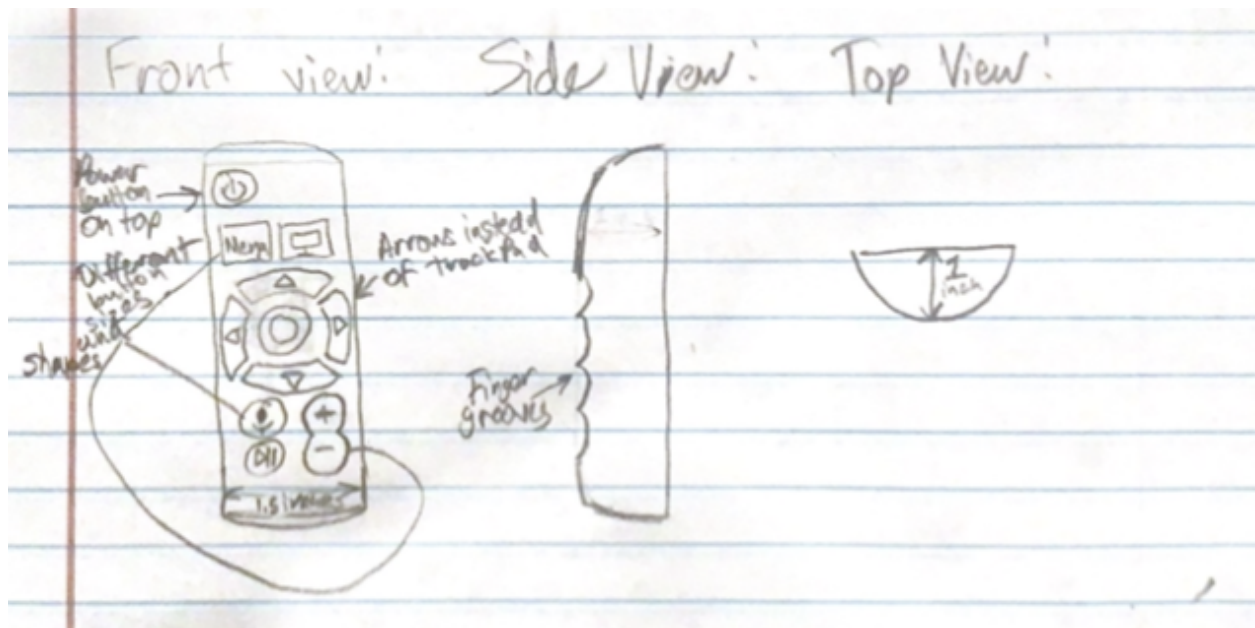 Front view:
Side View:
Top View:
Power
button
on top
Menu
Different
button
sizes
and
shapes
Arrows instead
of trackpad
+
-
1.5 inches
Finger
grooves
1
inch